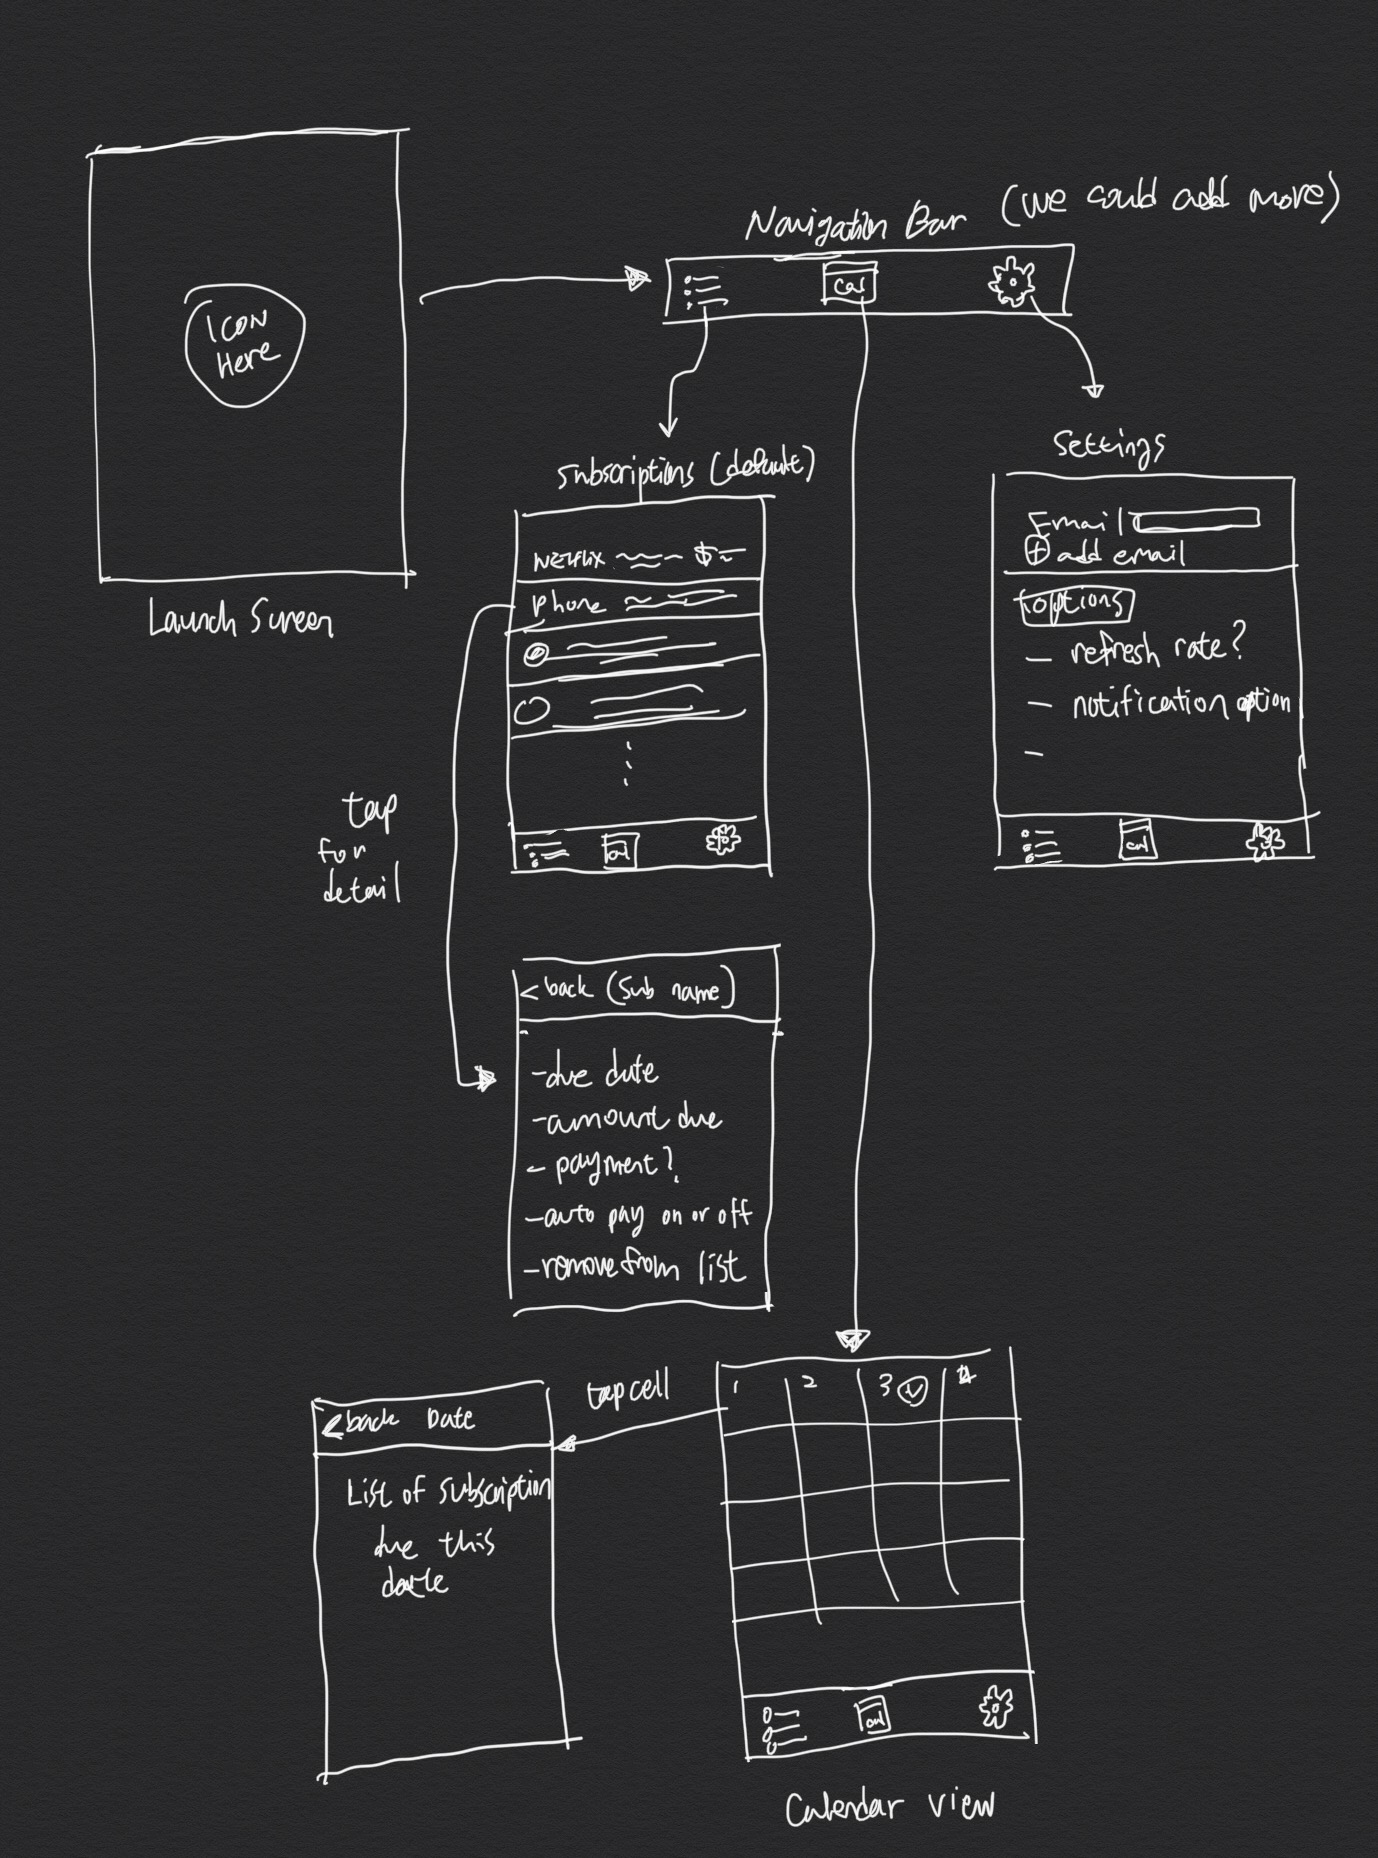 ICON
Here
Launch Screen
Navigation Bar (we could add more)
cal
Subscriptions (default)
NETFLIX $
phone
cal
tap
for
detail
Settings
Email
+ add email
options
- refresh rate?
- notification option
-
cal
< back (Sub name)
- due date
- amount due
- payment?
- auto pay on or off
- remove from list
tap cell
< back Date
List of subscription
due this
date
1 2 3 4
cal
Calendar view